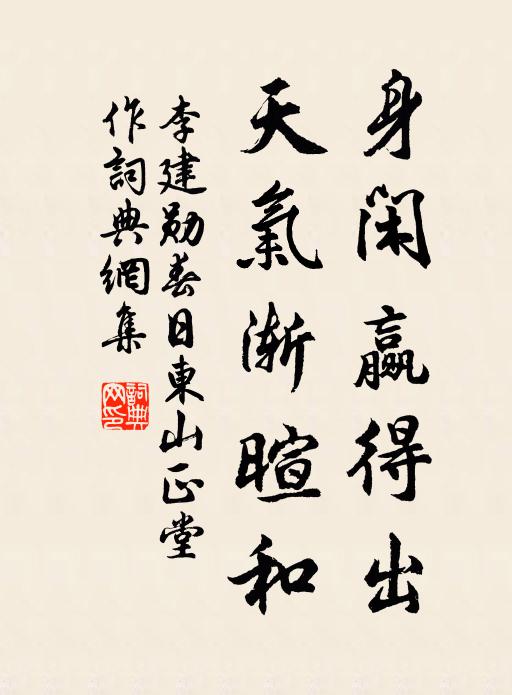 身閑贏得出
天氣漸暄和
李建勛春日東山正堂
作詞典網集
詞典
网印